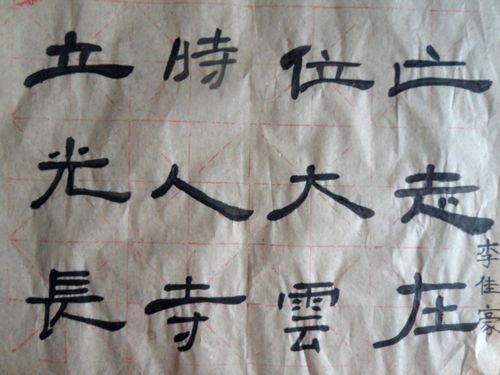 立時位亡
光人大志
長寺雲在
李佳豪